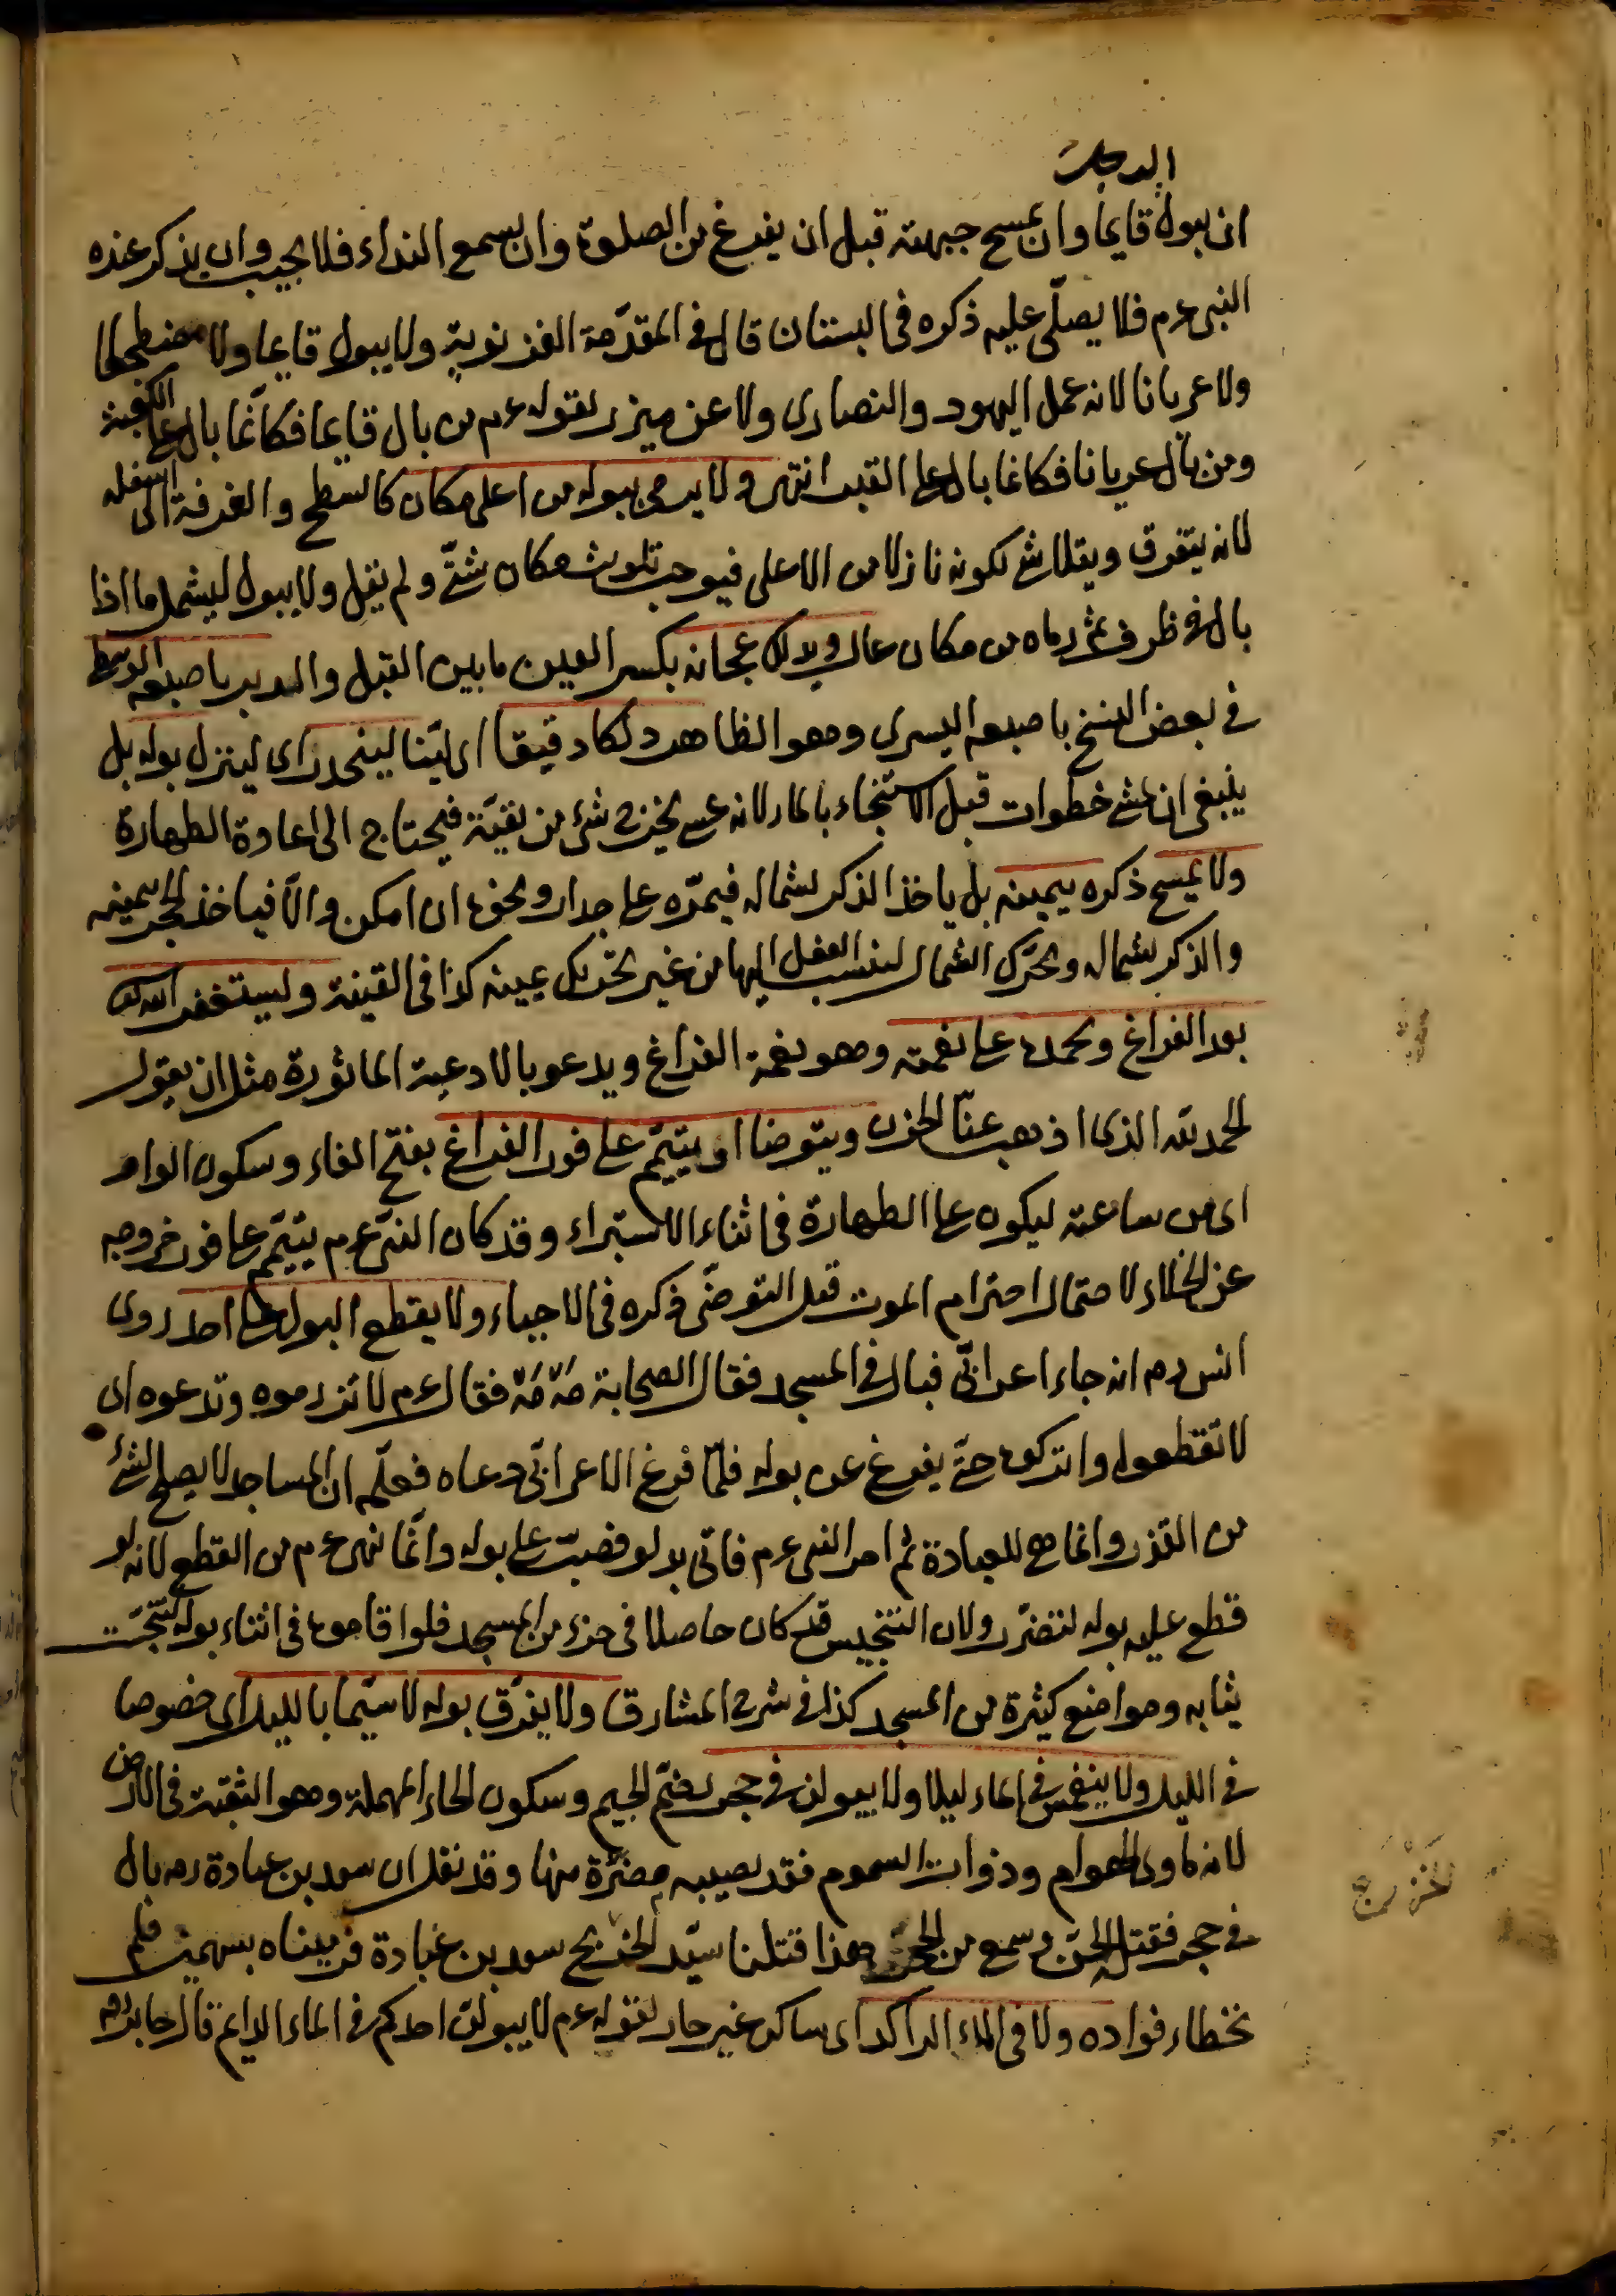 الرجل
ان يبول قايما وان يمسح جبهته قبل ان يفرغ من الصلوة وان يسمع النداء فلا يجيب وان يذكر عنده
النبي عم فلا يصلّى عليه ذكره في البستان قال في المقدّمة الغزنويّة ولا يبول قايما ولا مضطجعا
ولا عريانا لانه عمل اليهود والنصارى ولا عن ميزر لقوله عم من بال قايما فكانّما بال على الكعبة
ومن بال عريانا فكانما بال على القبر انتهى ولا يرمى ببوله من اعلى مكان كالسطح والغرفة الى اسفله
لانه يتفرق ويتلاشى لكونه نازلا من الاعلى فيوجب تلويث مكان شتّى ولم يقل ولا يبول ليشمل ما اذا
بال في ظرف ثم رماه من مكان عال ويدلك عجانه بكسر العين ما بين القبل والدبر باصبعه الوسطى
في بعض النسخ باصبعه اليسرى وهو الظاهر دلكا دقيقا اى ليّنا لينحدر اى لينزل بوله بل
ينبغي ان يمشي خطوات قبل الاستنجاء بالماء لانه عسى يخرج شئ من بقيّة فيحتاج الى اعادة الطهارة
ولا يمسح ذكره بيمينه بل ياخذ الذكر بشماله فيمرّه على جدار ونحوه ان امكن والّا فياخذ الحجر بيمينه
والذكر بشماله ويحرّك الشمال لينسب الفعل اليها من غير تحريك يمينه كذا في القنية ويستغفر الله تعالى
بعد الفراغ ويحمده على نعمته وهو نعمة الفراغ ويدعو بالادعية الماثورة مثل ان يقول
الحمد لله الذى اذهب عنّا الحزن ويتوضا او يتيمّم على فور الفراغ بفتح الفاء وسكون الواو
اى من ساعته ليكون على الطهارة في اثناء الاستبراء وقد كان النبي عم يتيمّم على فور خروجه
عن الخلاء لاحتمال اخترام الموت قبل التوضّى ذكره في الاحياء ولا يقطع البول على احد روى
انس رم انه جاء اعرابيّ فبال في المسجد فقال الصحابة مَهْ مَهْ فقال عم لا تزرموه وتدعوه اى
لا تقطعوا واتركوه حتّى يفرغ عن بوله فلمّا فرغ الاعرابيّ دعاه فعلّم ان المساجد لا يصلح لشئ
من القذر وانما هي للعبادة ثم امر النبي عم فاتى بدلو فصبّت على بوله وانّما نهى عم من القطع لانه لو
قطع عليه بوله لتضرّر ولان التنجيس قد كان حاصلا في جزء من المسجد فلو اقاموه في اثناء بوله لتنجّست
ثيابه ومواضع كثيرة من المسجد كذا في شرح المشارق ولا يفرّق بوله لا سيّما بالليل اى خصوصا
في الليل ولا ينغمس في الماء ليلا ولا يبولن في جحر بضمّ الجيم وسكون الحاء المهملة وهو الثقبة في الارض
لانه ماوى الهوام وذوات السموم فقد يصيبه مضرّة منها وقد نقل ان سعد بن عبادة رم بال
في جحر فقتل الجنّ وسمع من الجحر هذا قتلنا سيّد الخزرج سعد بن عبادة فرميناه بسهمين فلم
الخَزْرَج
نخطاء فواده ولا في الماء الراكد اى ساكن غير جار لقوله عم لا يبولنّ احدكم في الماء الدايم قال جابر رم